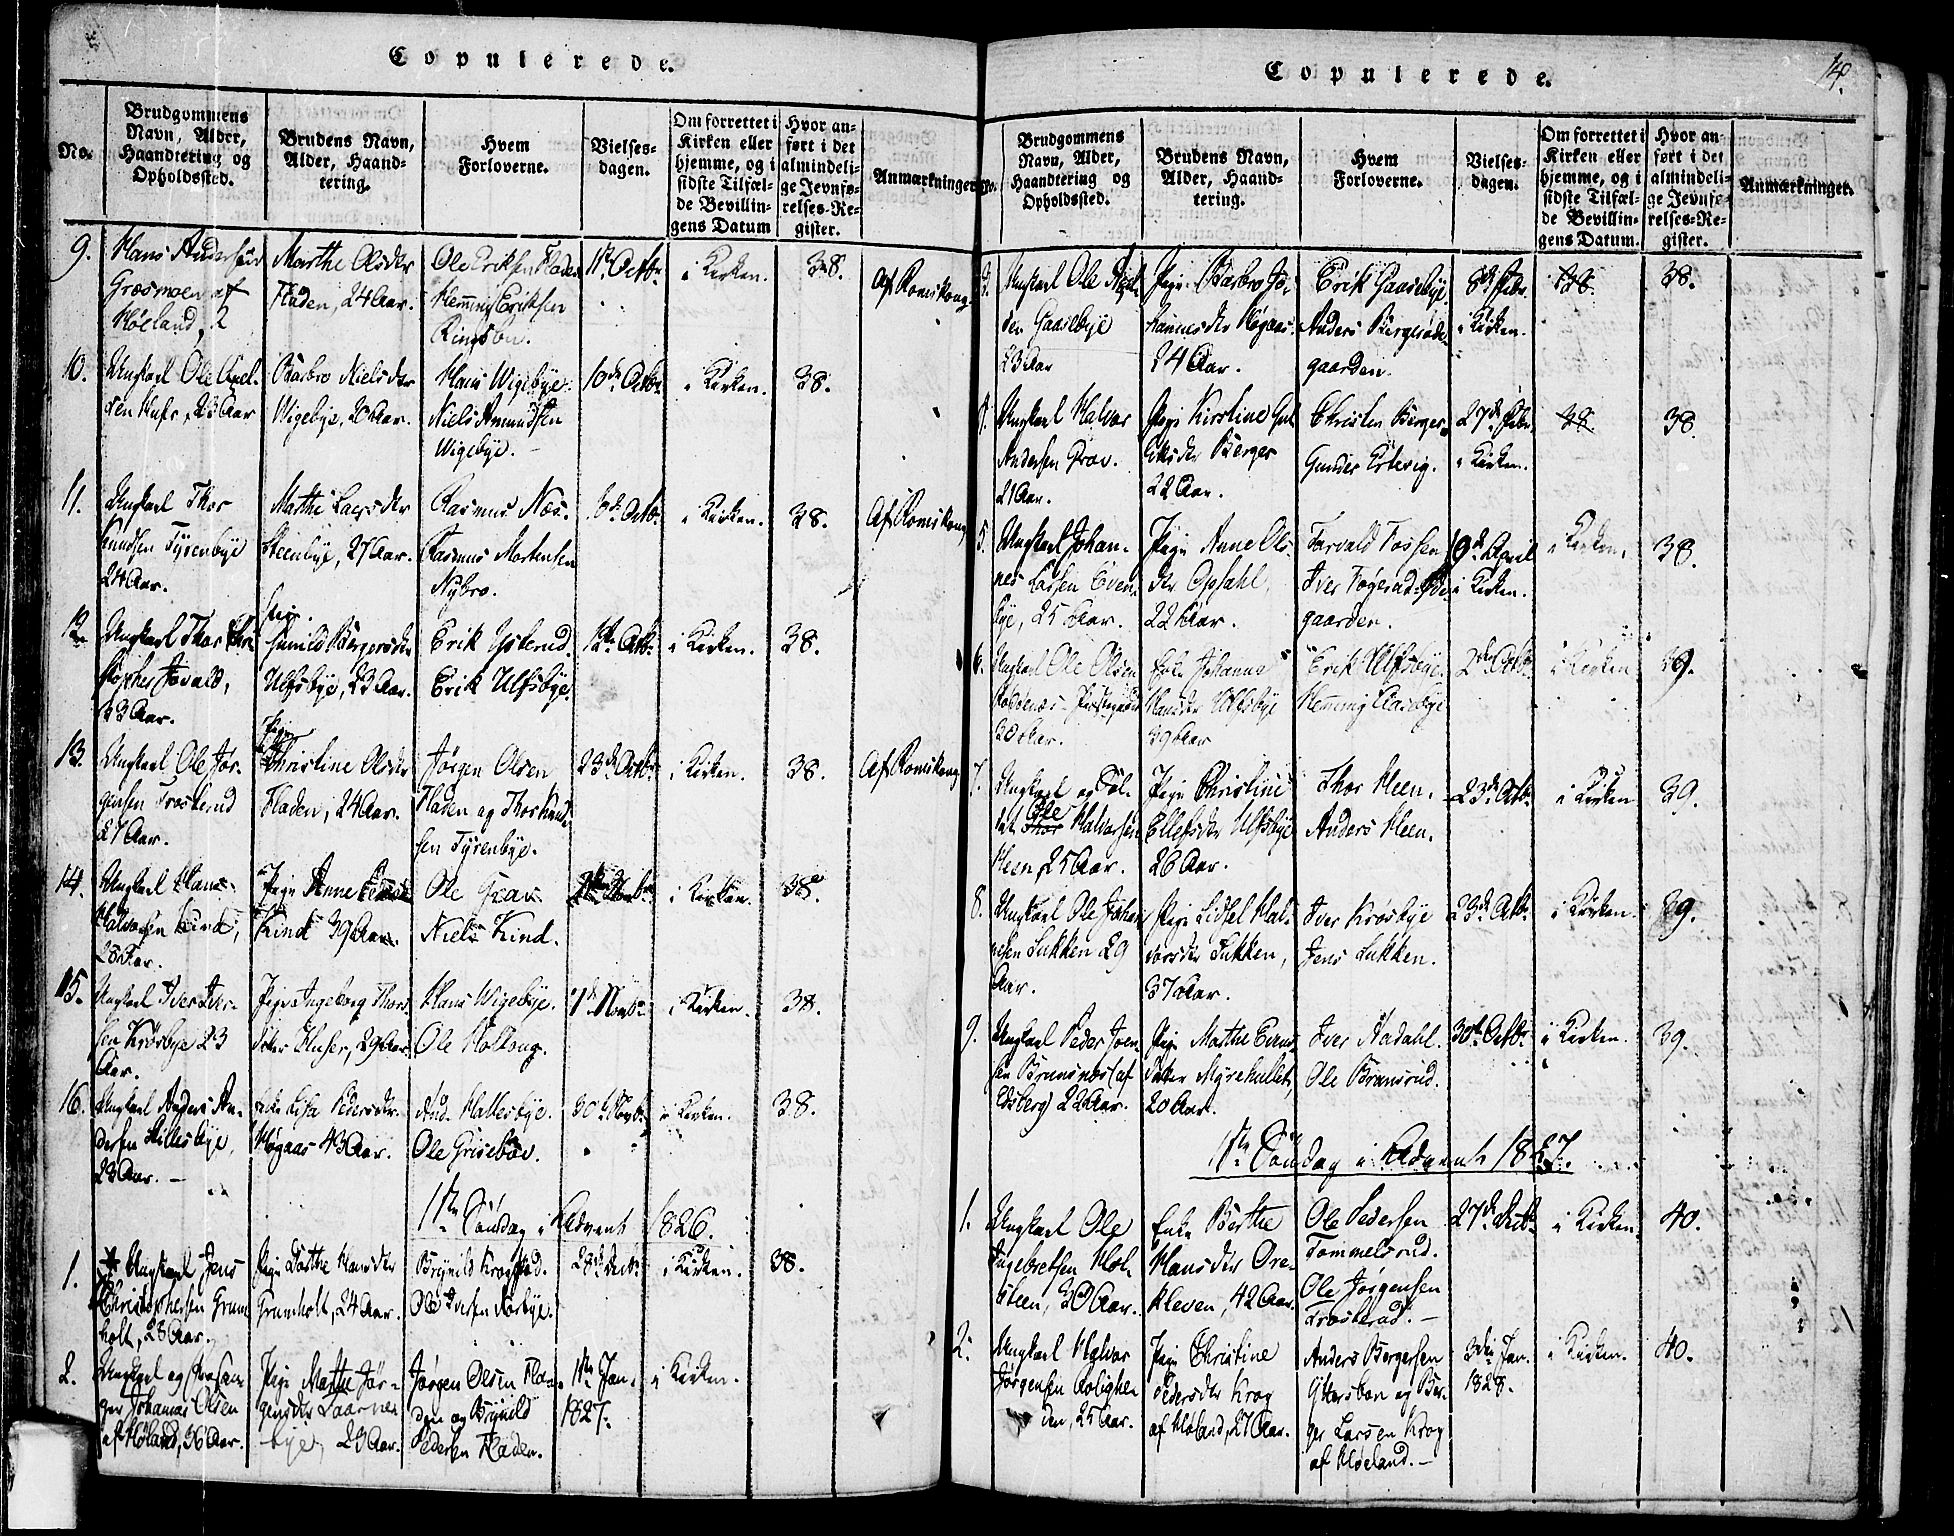 Copulerede.
No.
Brudgommens
Navn, Alder,
Haandtering og
Opholdssted.
Brudens Navn,
Alder, Haand-
tering.
Hvem
Forloverne.
Vielses-
dagen.
Om forrettet i
Kirken eller
hjemme, og i
sidste Tilfæl-
de Bevillin-
gens Datum
Hvor an-
ført i det
almindeli-
ge Jevnfø-
relses-Re-
gister.
Anmærkninger.
9.
Hans Andersen
Græsmoen af
Høland,
Marthe Olsdtr
Fladen, 24 Aar.
Ole Eriksen Fladen
Hemming Eriksen
1ste Octbr
i Kirken.
38.
Af Romskoug
10.
Ungkarl Ole Axel-
sen Hufs, 23 Aar
Barbro Nielsdtr
Wigebye, 20 Aar.
Hans Wigebye.
Niels Amundsen
Wigebye.
10de Octbr
i Kirken.
38.
11.
Ungkarl Thor
Knudsen Tyrenbye
24 Aar.
Marthe Larsdtr
Steenbye, 27 Aar.
Rasmus Næs.
Rasmus Mortensen
Nybro.
10de Octbr
i Kirken.
38.
Af Romskoug
12.
Ungkarl Thor
33 Aar.
Pige
Gunild Bergersdtr
Ulfsbye, 23 Aar.
Erik Ysterud.
Erik Ulfsbye.
12te Octbr
i Kirken.
38.
13.
Ungkarl Ole Jør-
gensen Trosterud
27 Aar.
Pige
Christine Olsdtr
Fladen, 24 Aar.
Jørgen Olsen
Fladen og Thor Knud-
sen Tyrenbye.
23de Octbr
i Kirken.
38.
Af Romskoug
14.
Ungkarl Hans
Halvorsen Kind,
28 Aar.
Pige Anne
Kind 39 Aar.
Ole Grav
Niels Kind.
i Kirken.
38.
15.
Ungkarl Iver Iver-
sen Krosbye 23
Aar.
Pige Ingeborg Thors-
datter Huser, 29 Aar.
Hans Wigebye.
Ole Holtoug.
1ste Novbr
i Kirken.
38.
16.
Ungkarl Anders An-
dersen Hillesbye,
23 Aar.
Enke Lisa Pedersdtr
Høgaas 43 Aar.
And. Hallesbye.
Ole Grisebøe.
30te Novbr
i Kirken.
38.
1ste Søndag i Advent 1826.
1.
Ungkarl Jens
Christophersen Grum-
holt, 28 Aar.
Pige Dorthe Hansdtr
Grumholt, 24 Aar.
Brynild Krogstad.
Ole Iversen Norbye.
28de Decbr
i Kirken.
38.
2.
ger Johannes Olsen
af Høland, 36 Aar.
Pige Marthe Jør-
gensdtr Taarnes-
bye, 23 Aar.
Jørgen Olsen Fla-
den og Brynild
Pedersen Fladen.
11te Jan.
1827.
i Kirken.
14.
Copulerede.
No.
Brudgommens
Navn, Alder,
Haandtering og
Opholdssted.
Brudens Navn,
Alder, Haand-
tering.
Hvem
Forloverne.
Vielses-
dagen.
Om forrettet i
Kirken eller
hjemme, og i
sidste Tilfæl-
de Bevillin-
gens Datum.
Hvor an-
ført i det
almindeli-
ge Jevnfø-
relses-Re-
gister.
Anmærkninger.
3.
Ungkarl Ole
sen Gaasebye
23 Aar
Pige Barbro Jo-
hannesdtr Høgaas.
24 Aar.
Erik Gaasebye
Anders Bergerøde-
gaarden.
8de Febr.
i Kirken.
38.
38.
4.
Ungkarl Halvor
Andersen Grav.
21 Aar.
Pige Kirstine Gul-
Berger
22 Aar.
Christen Berger.
Gunder Ertevig.
27de Febr.
i Kirken.
38
38.
5.
Ungkarl Johan-
nes Larsen Even-
bye, 25 Aar.
Pige Anne Ols-
dtr Opsahl,
22 Aar.
Torvald Fossen
gaarden.
19de April
i Kirken.
i Kirken.
38.
6.
Ungkarl Ole Olsen
30 Aar.
Enke Johanne
Hansdtr Ulfsbye
39 Aar
Erik Ulfsbye.
Hemming Gaasebye
2den Octbr
i Kirken
39.
7.
Ungkarl og Sol-
dat Ole Thor Halvorsen
Heen, 25 Aar.
Pige Christine
Ellefsdtr Ulfsbye
26 Aar.
Thor Heen.
Anders Heen.
23de Octbr
i Kirken
39.
8.
Ungkarl Ole Johan-
nesen Lukken 29
Aar.
Pige Lidsel Hal-
vorsdtr Lukken,
37 Aar.
Iver Krosbye
Jens Lukken.
23de Octbr
i Kirken.
39.
9.
Ungkarl Peder Joen-
sen Brunsnæs (af
Edsberg) 22 Aar.
Pige Marthe Evens-
datter Myrehullet,
20 Aar.
Iver Aadahl.
Ole Brunsrud.
30te Octbr
i Kirken.
39.
1ste Søndag i Advent 1827.
1.
Ungkarl Ole
Ingebretsen Hol-
steen, 30 Aar.
Enke Berthe
Hansdtr Ore-
kleven, 42 Aar.
Ole Pedersen
Tommelsrud.
Ole Jørgensen
Trosterud.
27de Decbr
i Kirken.
40.
2.
Ungkarl Halvor
Jørgensen Rolighe-
den, 25 Aar.
Pige Christine
Pedersdtr Krog
af Høland, 27 Aar.
Anders Bergersen
Gittersbøn og Ber-
ger Larsen Krog
af Høeland.
3die Jan.
1828.
i Kirken.
40.